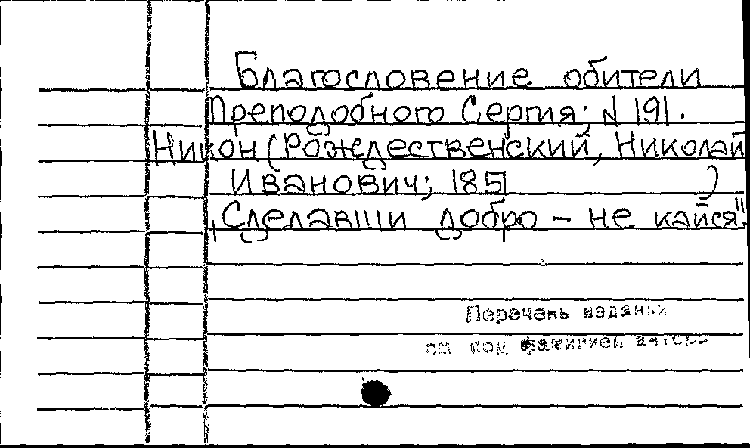 Благословение обители
Преподобного Сергия; N 191.
Никон (Рождественский, Николай
Иванович; 1851 )
„Сделавши добро – не кайся".
Перечень изданий
см. под фамилией автора